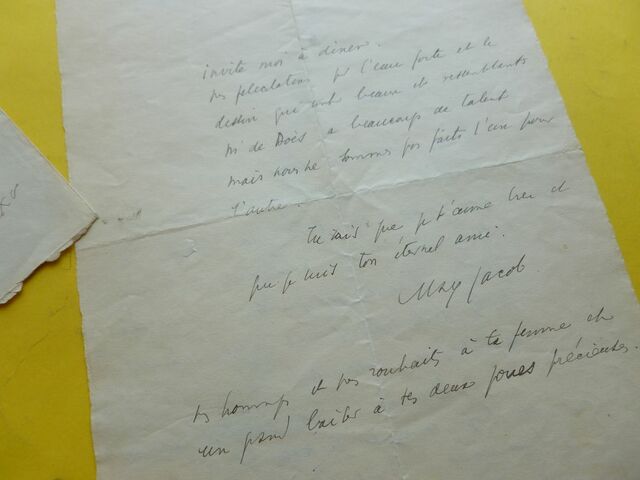 invite moi à diner.
mes félicitations pr l'eau forte et le
dessin qui sont beaux et ressemblants
Mr de Boës a beaucoup de talent
mais nous ne sommes pas faits l'un pour
l'autre.
Tu sais que je t'aime bien et
que je suis ton éternel ami.
Max Jacob
mes hommages et mes souhaits à ta femme et
un grand baiser à tes deux joues précieuses.